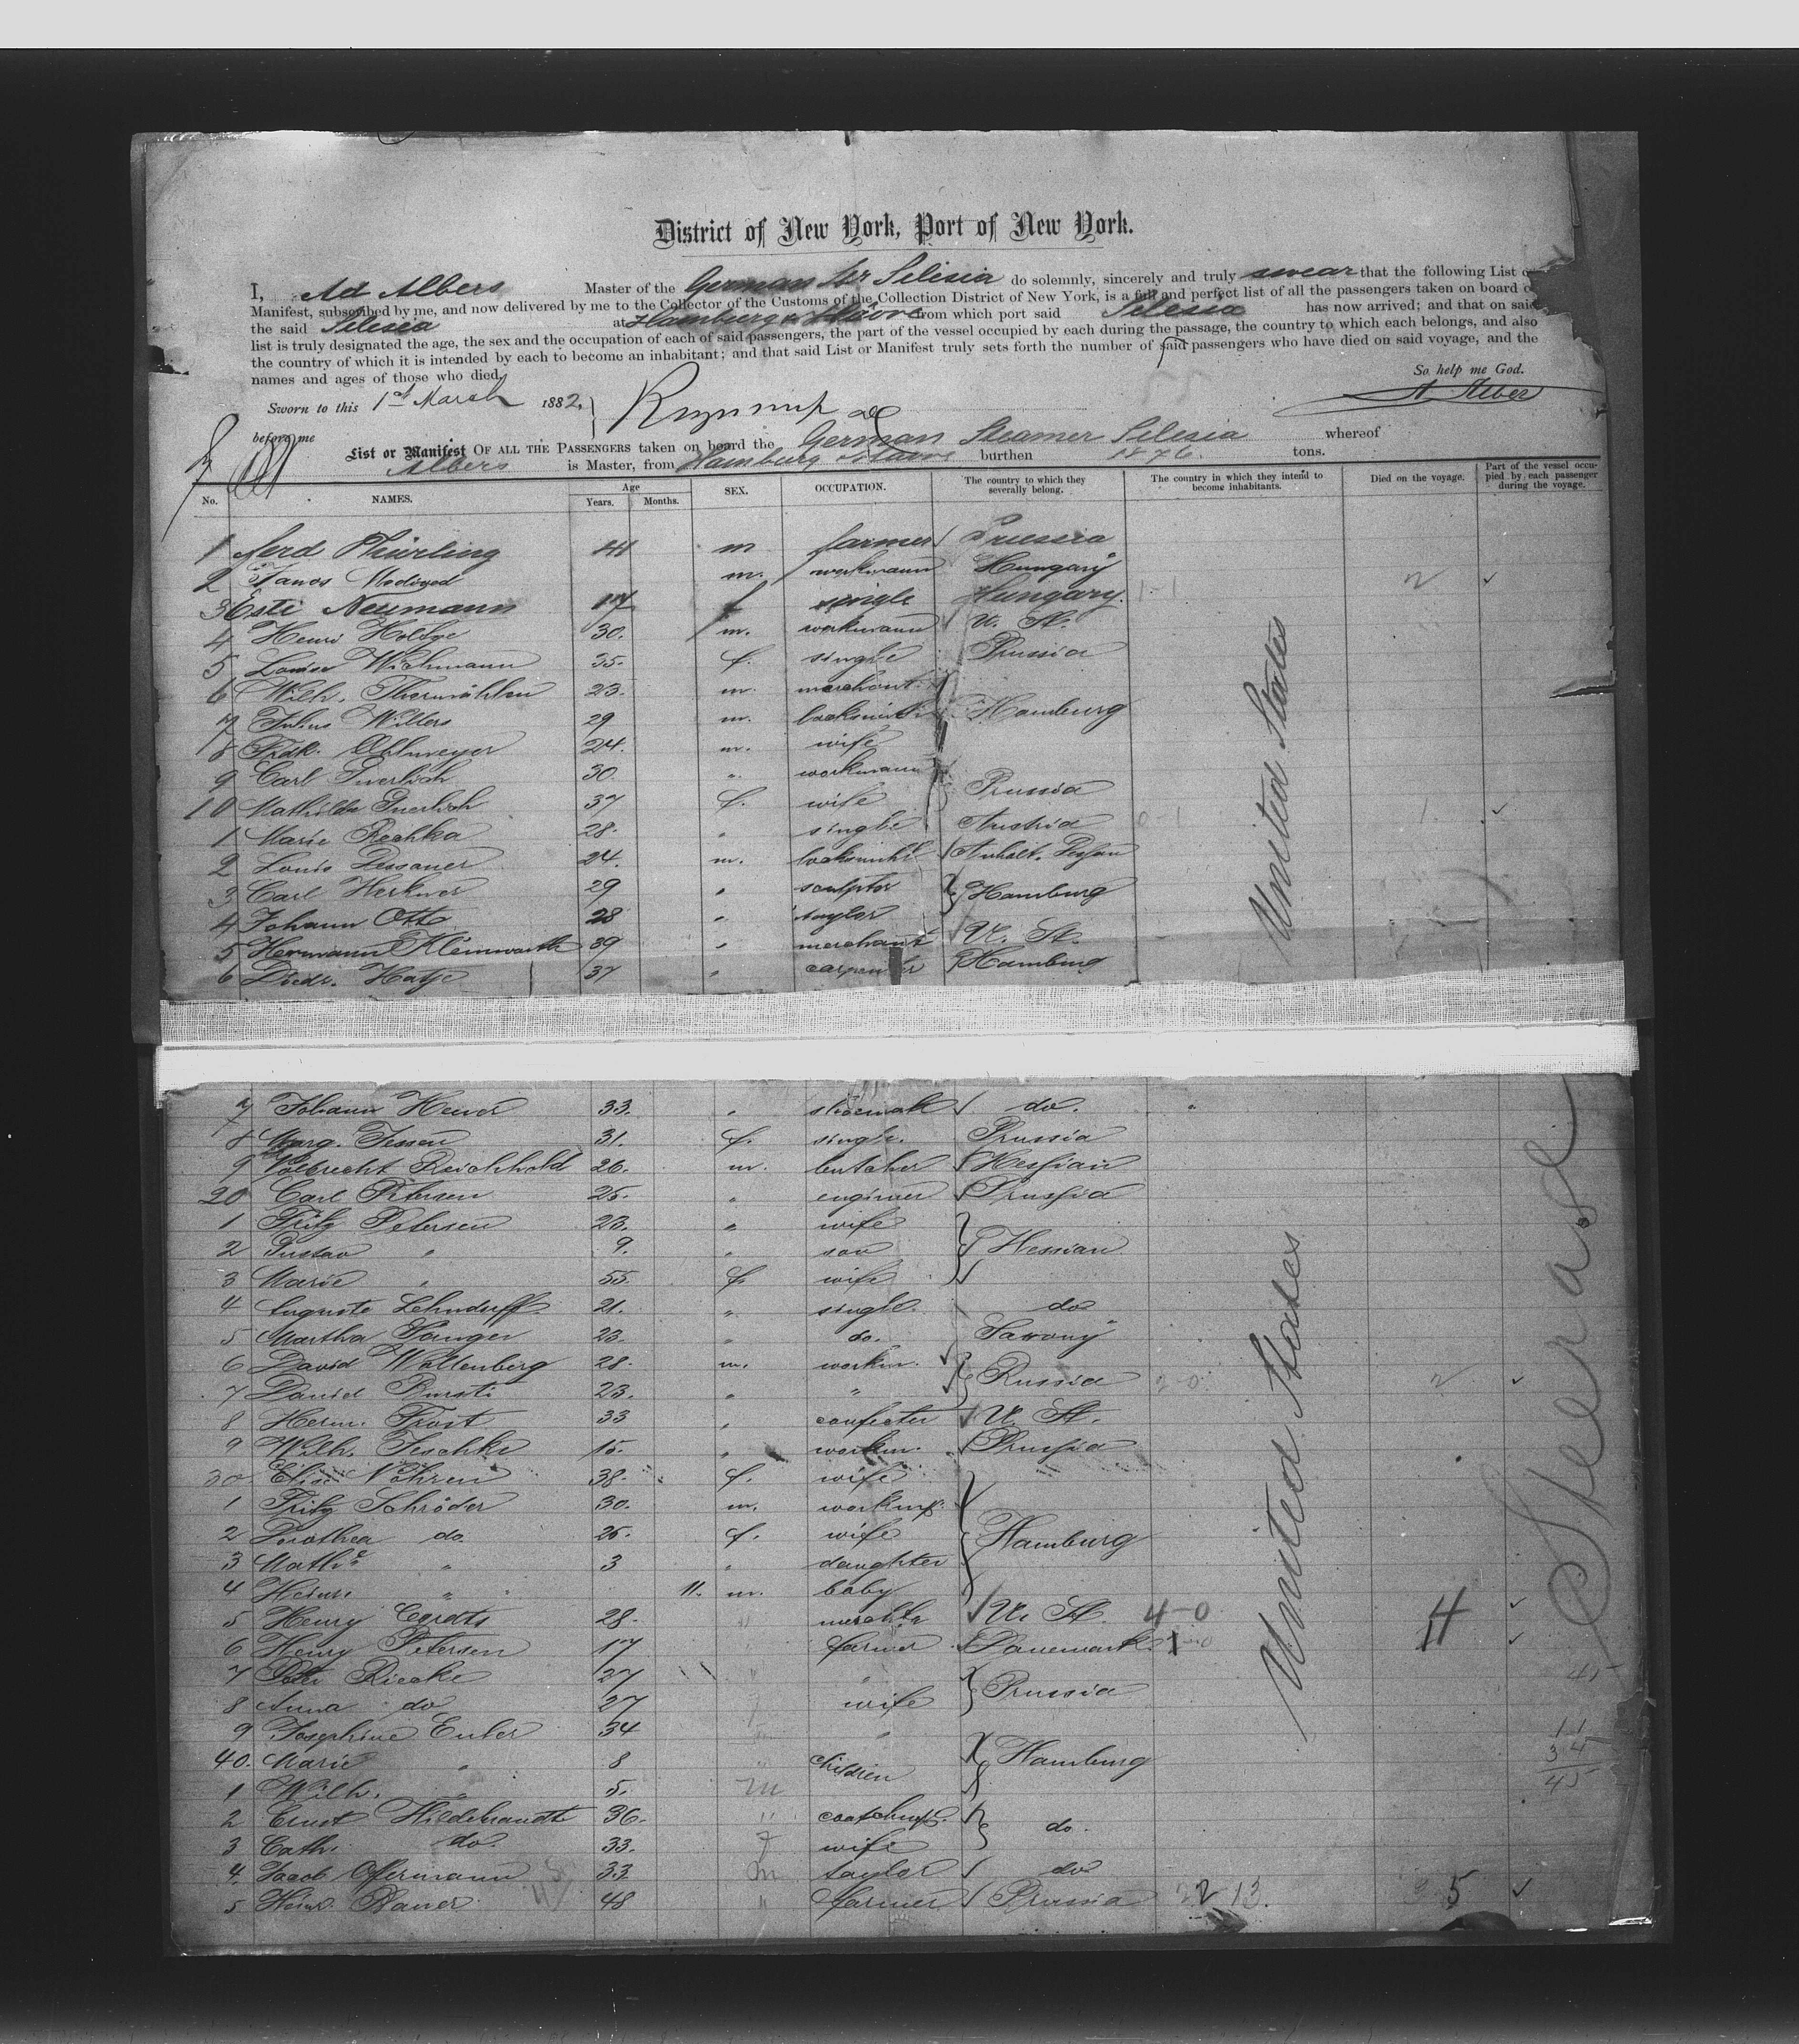 District of New York, Port of New York.
I, Ad Albers Master of the German Str Silesia do solemnly, sincerely and truly swear that the following List o
Manifest, subscribed by me, and now delivered by me to the Collector of the Customs of the Collection District of New York, is a full and perfect list of all the passengers taken on board o
the said Silesia at Hamburg & Havre from which port said Silesia has now arrived; and that on said
list is truly designated the age, the sex and the occupation of each of said passengers, the part of the vessel occupied by each during the passage, the country to which each belongs, and also
the country of which it is intended by each to become an inhabitant; and that said List or Manifest truly sets forth the number of said passengers who have died on said voyage, and the
names and ages of those who died.
So help me God.
Sworn to this 1st March 1882,
before me
List or Manifest OF ALL THE PASSENGERS taken on board the German Steamer Silesia whereof
Albers is Master, from Hamburg & Havre burthen 1876. tons.
No. NAMES. Age Years. Months. SEX. OCCUPATION. The country to which they severally belong. The country in which they intend to become inhabitants. Died on the voyage. Part of the vessel occupied by each passenger during the voyage.
1 Ferd 41 m farmer Prussia
2 Janos m. workmann Hungary 2
3 Esti Neumann 17 f single Hungary. 1-1
4 Henri 30. m. workmann U. St.
5 Louise Wichmann 35. f. single Prussia
6 Wilh. 23. m. merchant
7 Julius Willers 29 m. locksmith Hamburg
8 Fridk. Ahlmeyer 24. m. wife
9 Carl 30. " workmann
10 Mathilde 37 f. wife Prussia
1 Marie 28. " single Austria 0-1 1
2 Louis Dessauer 24. m. locksmith Anhalt. Dessau
3 Carl 29 " sculptor Hamburg
4 Johann Otto 28 " taylor
5 Hermann Kleinworth 39 " merchant U. St.
6 Diedr. Hatje 37 " carpenter Hamburg
7 Johann 33. " shoemak do.
8 Marg. Jessen 31. f. single. Prussia
9 Reichhold 26. m. butcher Hessian
20 Carl Petersen 25. " engineer Prussia
1 Fritz Petersen 23. " wife
2 Gustav " 9. " son Hessian
3 Marie " 55. f. wife
4 Auguste Lehnduff 21. " single. do
5 Martha 23. " do. Saxony
6 David Wollenberg 28. m. workm. Russia
7 David 23. " " 2-0 2
8 Herm. Frost 33 " confecter U. St.
9 Wilh. Jeschke 15. " workm. Prussia
30 Elise 38. f. wife
1 Fritz Schröder 30. m. workm.
2 Dorothea do. 25. f. wife Hamburg
3 Math " 3 " daughter
4 Heinr. " 11. m. baby
5 Henry 28. " U. St. 4-0 4
6 Henry Petersen 17 " farmer Danemark
7 27 " " Prussia
8 Anna do 27 f wife
9 Josephine Euler 34 " "
40. Marie " 8 " children Hamburg
1 Wilh. " 5. m
2 Ernst Hildebrandt 36. " do.
3 Cath. do. 33. f wife
4. Offermann 33 m taylor do
5 Heinr. 48 " farmer Prussia 22 13. 5
United States
United States
Steerage
45
11
34
45